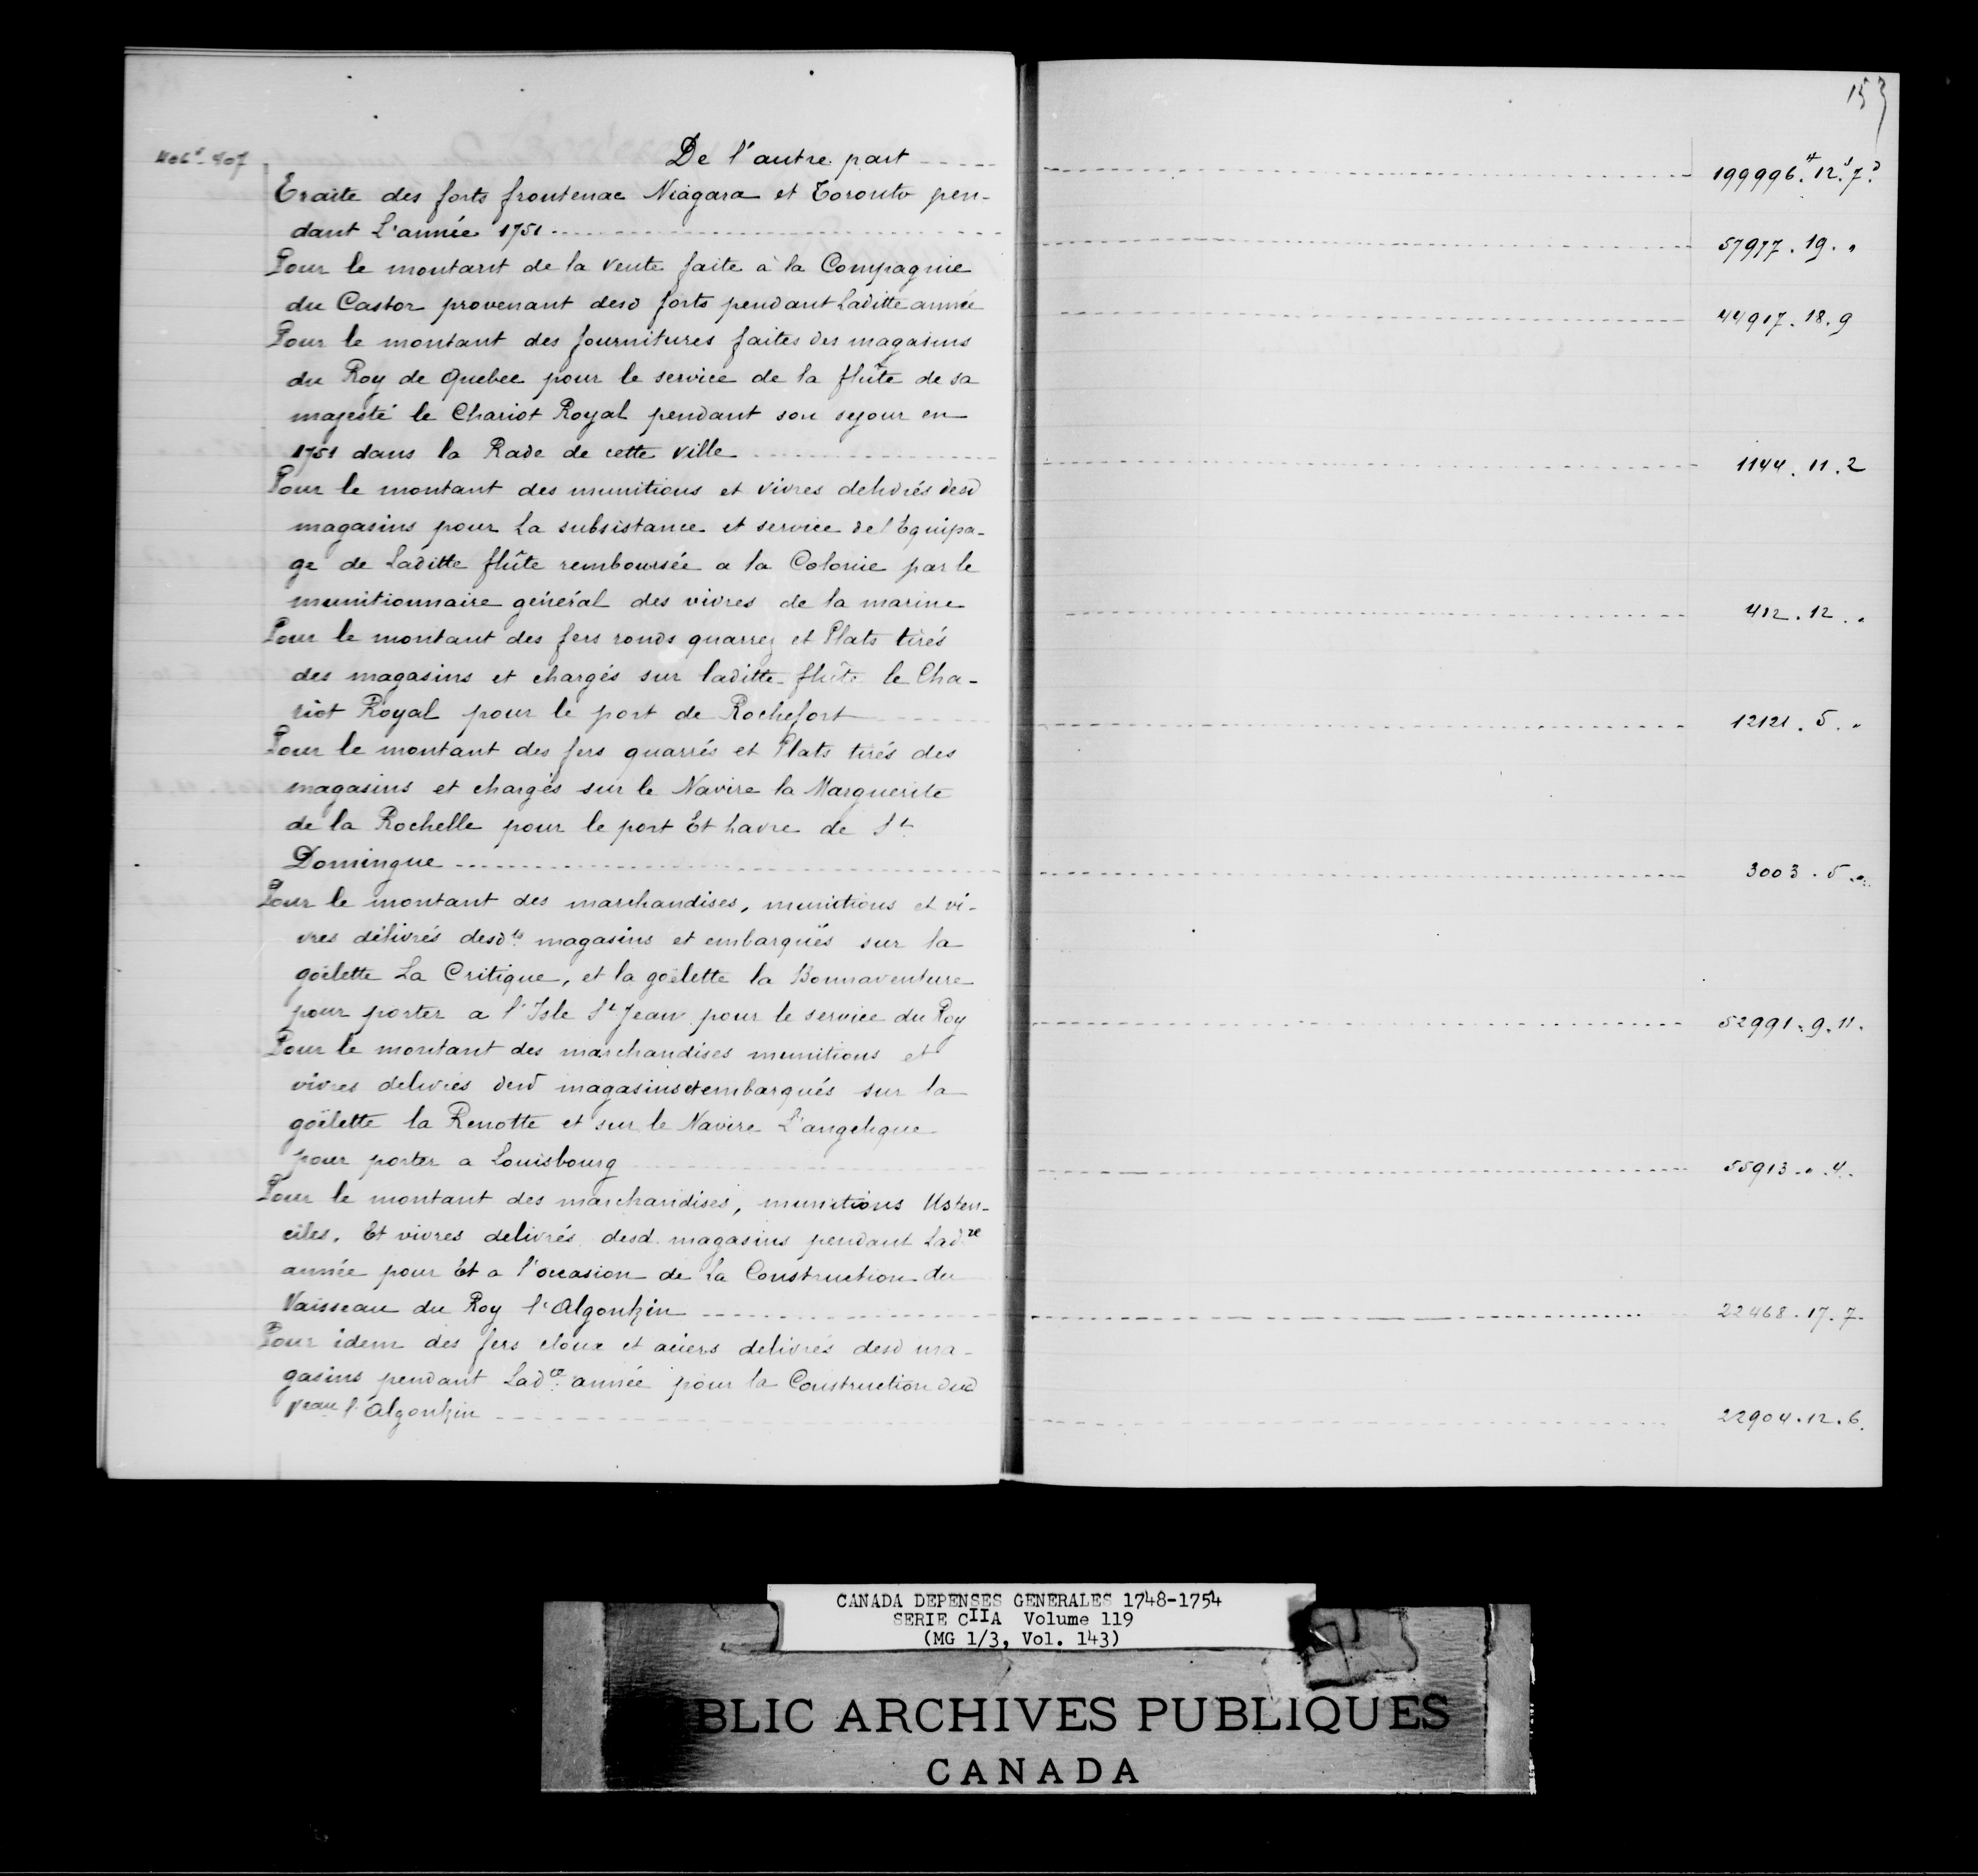 153
De l'autre part ----- 199996.# 12.s 7.d
Traite des forts frontenac Niagara et Toronto pen-
dant L'année 1751 ----- 57977 . 19 . "
Pour le montant de la vente faite à la Compagnie
du Castor provenant desd forts pendant Laditte année ----- 44917 . 18 . 9
Pour le montant des fournitures faites des magasins
du Roy de Quebec pour le service de la flûte de sa
majesté le Chariot Royal pendant son sejour en
1751 dans la Rade de cette ville ----- 1144 . 11 . 2
Pour le montant des munitions et vivres delivrés desd
magasins pour La subsistance et service de l'Equipa-
ge de Laditte flûte remboursée a la Colonie par le
munitionnaire général des vivres de la marine ----- 412 . 12 . "
Pour le montant des fers ronds quarrez et Plats tirés
des magasins et chargés sur laditte flûte le Cha-
riot Royal pour le port de Rochefort ----- 12121 . 5 . "
Pour le montant des fers quarrés et Plats tirés des
magasins et chargés sur le Navire la Marguerite
de la Rochelle pour le port Et havre de St
Domingue ----- 3003 . 5 . "
Pour le montant des marchandises, munitions et vi-
vres délivrés desdts magasins et embarqués sur la
goëlette La Critique, et la goëlette la Bonnaventure
pour porter a l'Isle St Jean pour le service du Roy ----- 52991 . 9 . 11 .
Pour le montant des marchandises munitions et
vivres delivrés desd magasins et embarqués sur la
goëlette la Renotte et sur le Navire L'angelique
pour porter a Louisbourg ----- 55913 . " . 4 .
Pour le montant des marchandises, munitions Usten-
ciles, Et vivres delivrés desd. magasins pendant Lad.re
année pour Et a l'occasion de La Construction du
Vaisseau du Roy l'Algonkin ----- 22468 . 17 . 7 .
Pour idem des fers cloux et aciers delivrés desd ma-
gasins pendant Ladte année pour la Construction dud
Veau l'Algonkin ----- 22904 . 12 . 6 .
CANADA DEPENSES GENERALES 1748-1754
SERIE CIIA Volume 119
(MG 1/3, Vol. 143)
BLIC ARCHIVES PUBLIQUES
CANADA